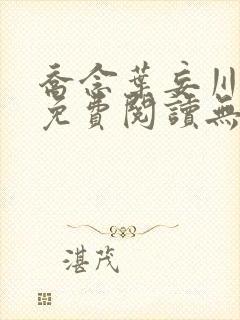 喬念葉妄川
免費閱讀無
湛茂